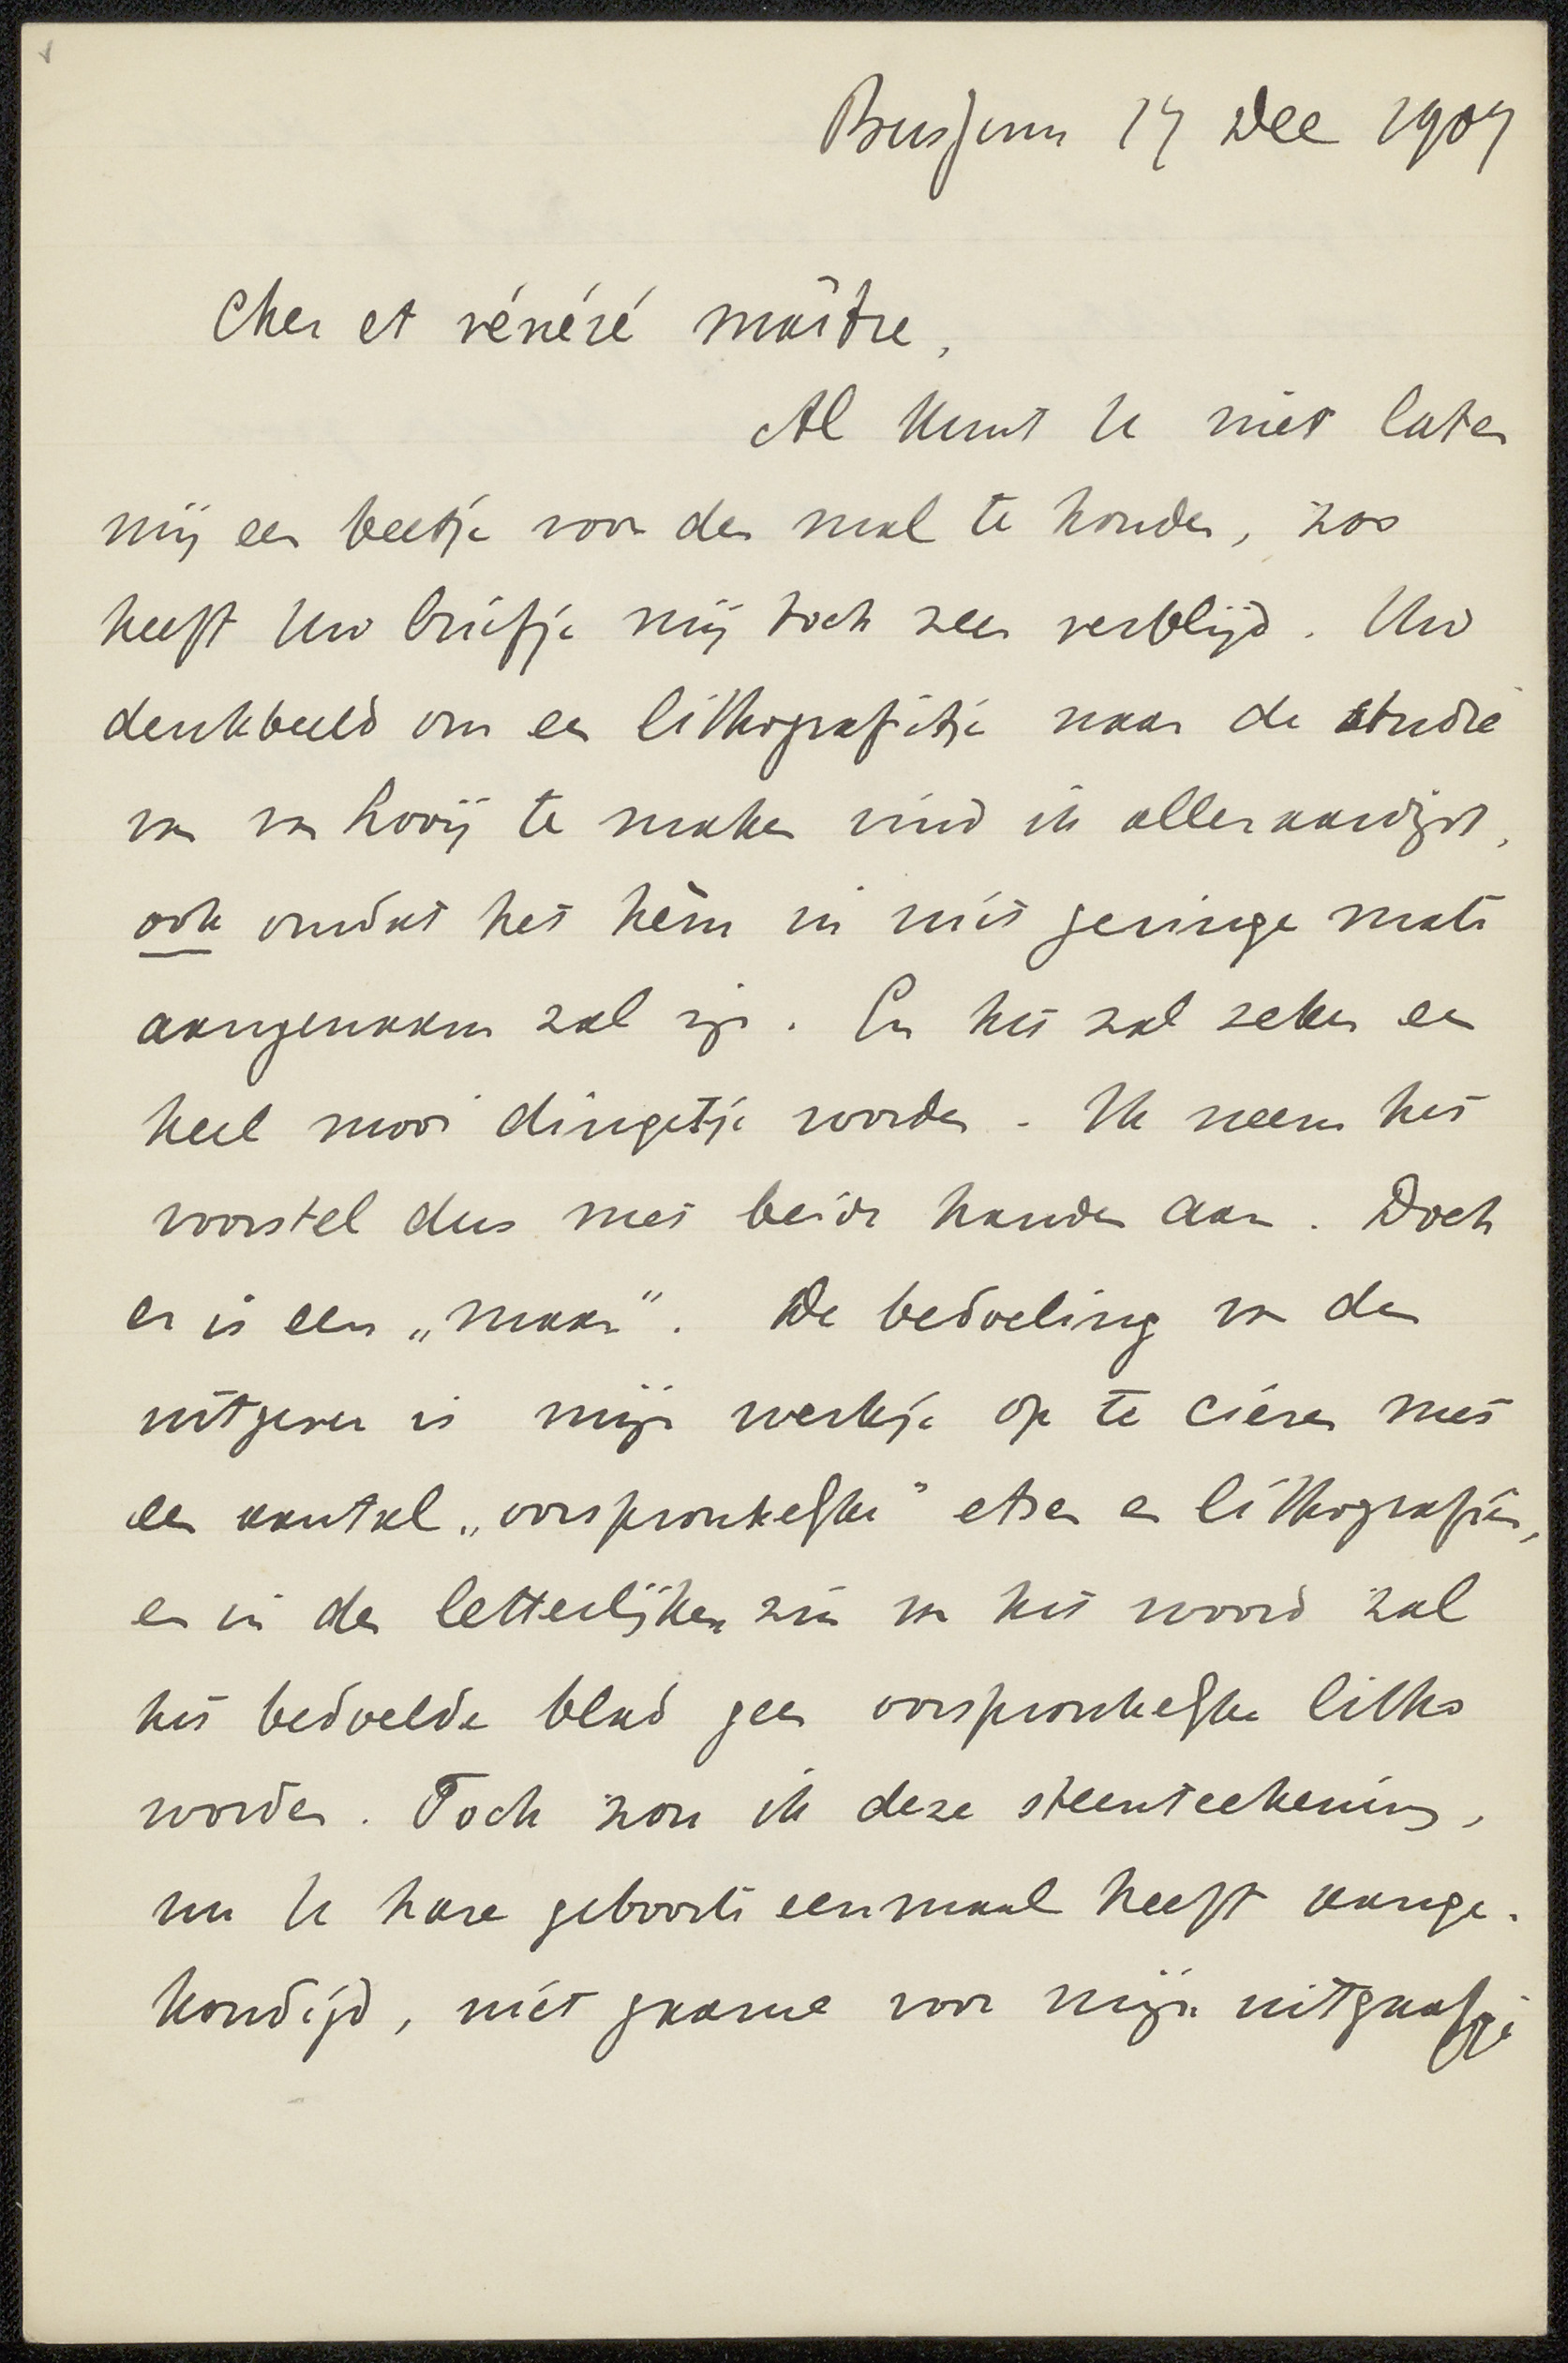 Bussum 17 Dec 1907
Cher et vénéré maître,
Al kunt U niet laten
mij een beetje voor den mal te houden, zoo
heeft Uw briefje mij toch zeer verblijd. Uw
denkbeeld om een lithografietje naar de studie
van van Looij te maken vind ik alleraardigst,
ook omdat het hèm in niet geringe mate
aangenaam zal zijn. En het zal zeker een
heel mooi dingetje worden. Ik neem het
voorstel dus met beide handen aan. Doch
er is een „maar". De bedoeling van den
uitgever is mijn werkje op te cieren met
een aantal „oorspronkelijke" etsen en lithografieën,
en in den letterlijken zin van het woord zal
het bedoelde blad geen oorspronkelijke litho
worden. Toch zou ik deze steenteekening,
nu U hare geboorte eenmaal heeft aange-
kondigd, niet gaarne voor mijn uitgaafje